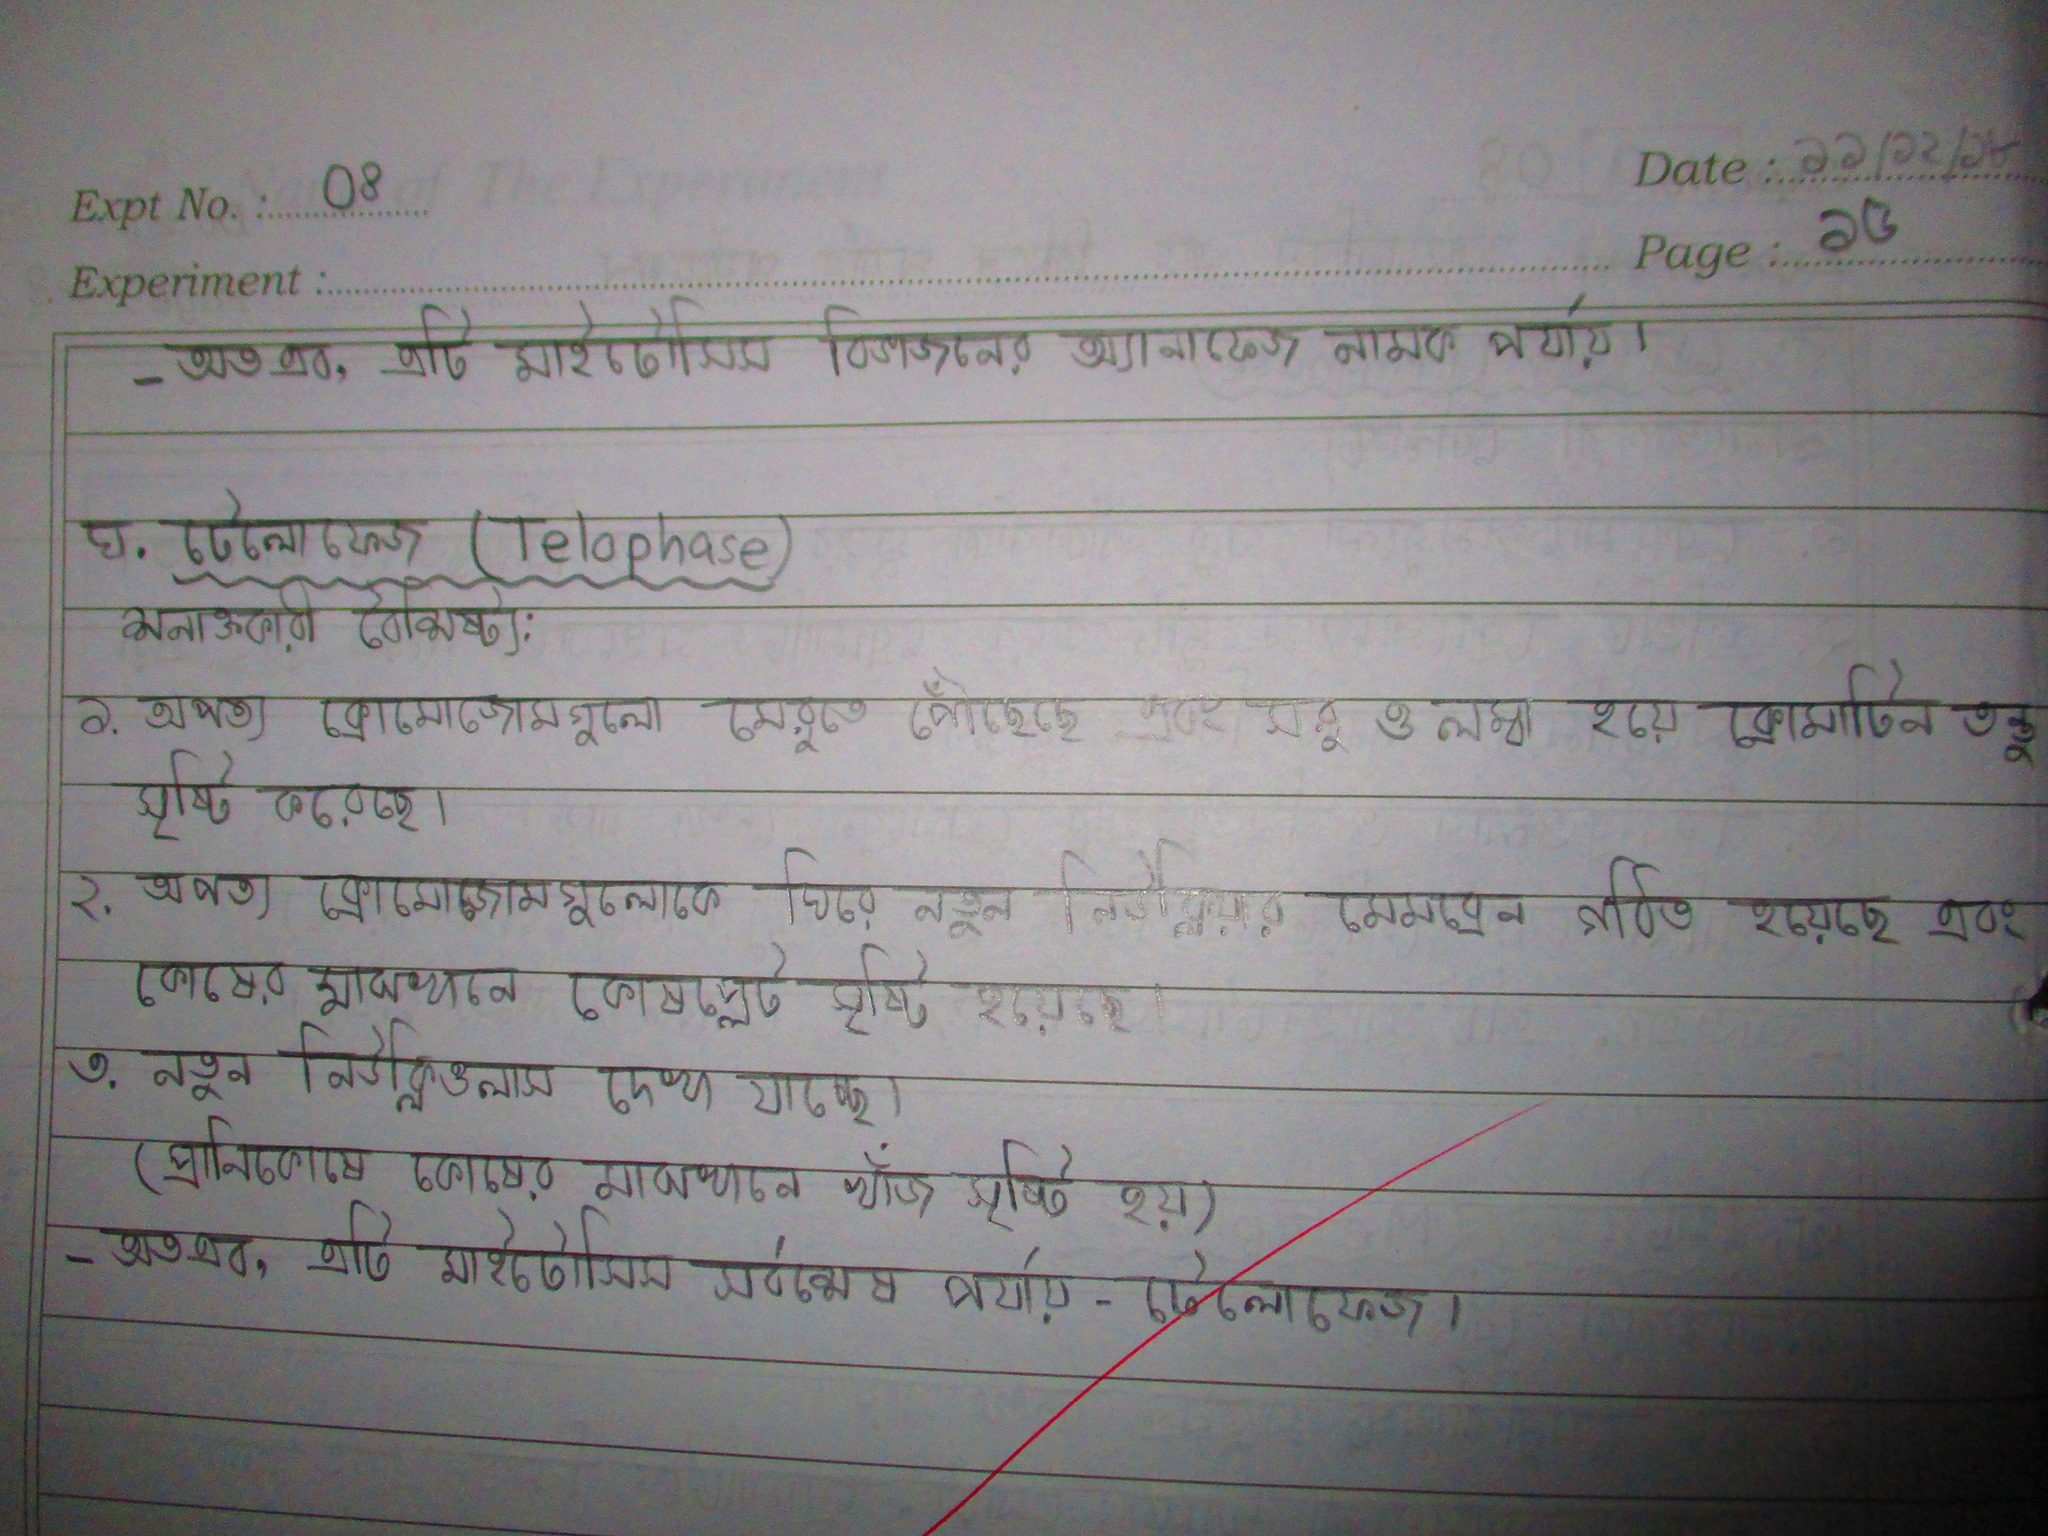 Expt No. : 08
Date : ১১/১২/১৮
Experiment :
Page : ১৫
- অতএব, এটি মাইটোসিস বিভাজনের অ্যানাফেজ নামক পর্যায়।
ঘ. টেলোফেজ (Telophase)
শনাক্তকারী বৈশিষ্ট্য:
১. অপত্য ক্রোমোজোমগুলো মেরুতে পৌঁছেছে এবং সরু ও লম্বা হয়ে ক্রোমাটিন তন্তু
সৃষ্টি করেছে।
২. অপত্য ক্রোমোজোমগুলোকে ঘিরে নতুন নিউক্লিয়ার মেমব্রেন গঠিত হয়েছে এবং
কোষের মাঝখানে কোষপ্লেট সৃষ্টি হয়েছে।
৩. নতুন নিউক্লিওলাস দেখা যাচ্ছে।
(প্রানিকোষে কোষের মাঝখানে খাঁজ সৃষ্টি হয়)
- অতএব, এটি মাইটোসিস সর্বশেষ পর্যায় - টেলোফেজ।